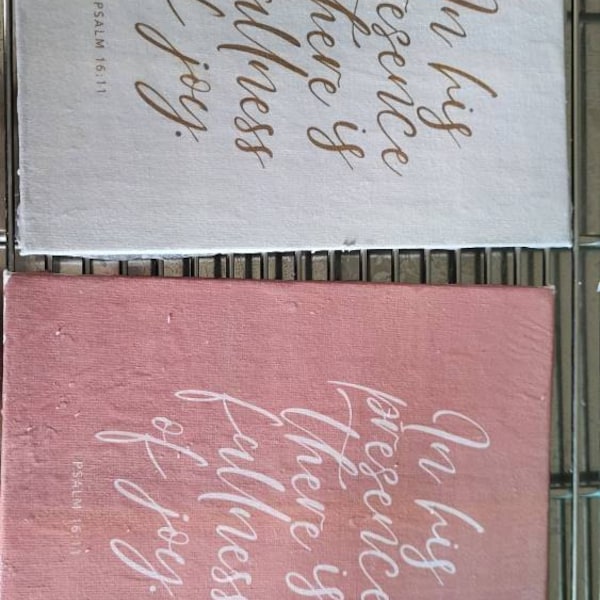 In his
resence
there is
ullness
f joy.
PSALM 16:11
In his
presence
there is
fullness
of joy.
PSALM 16:11